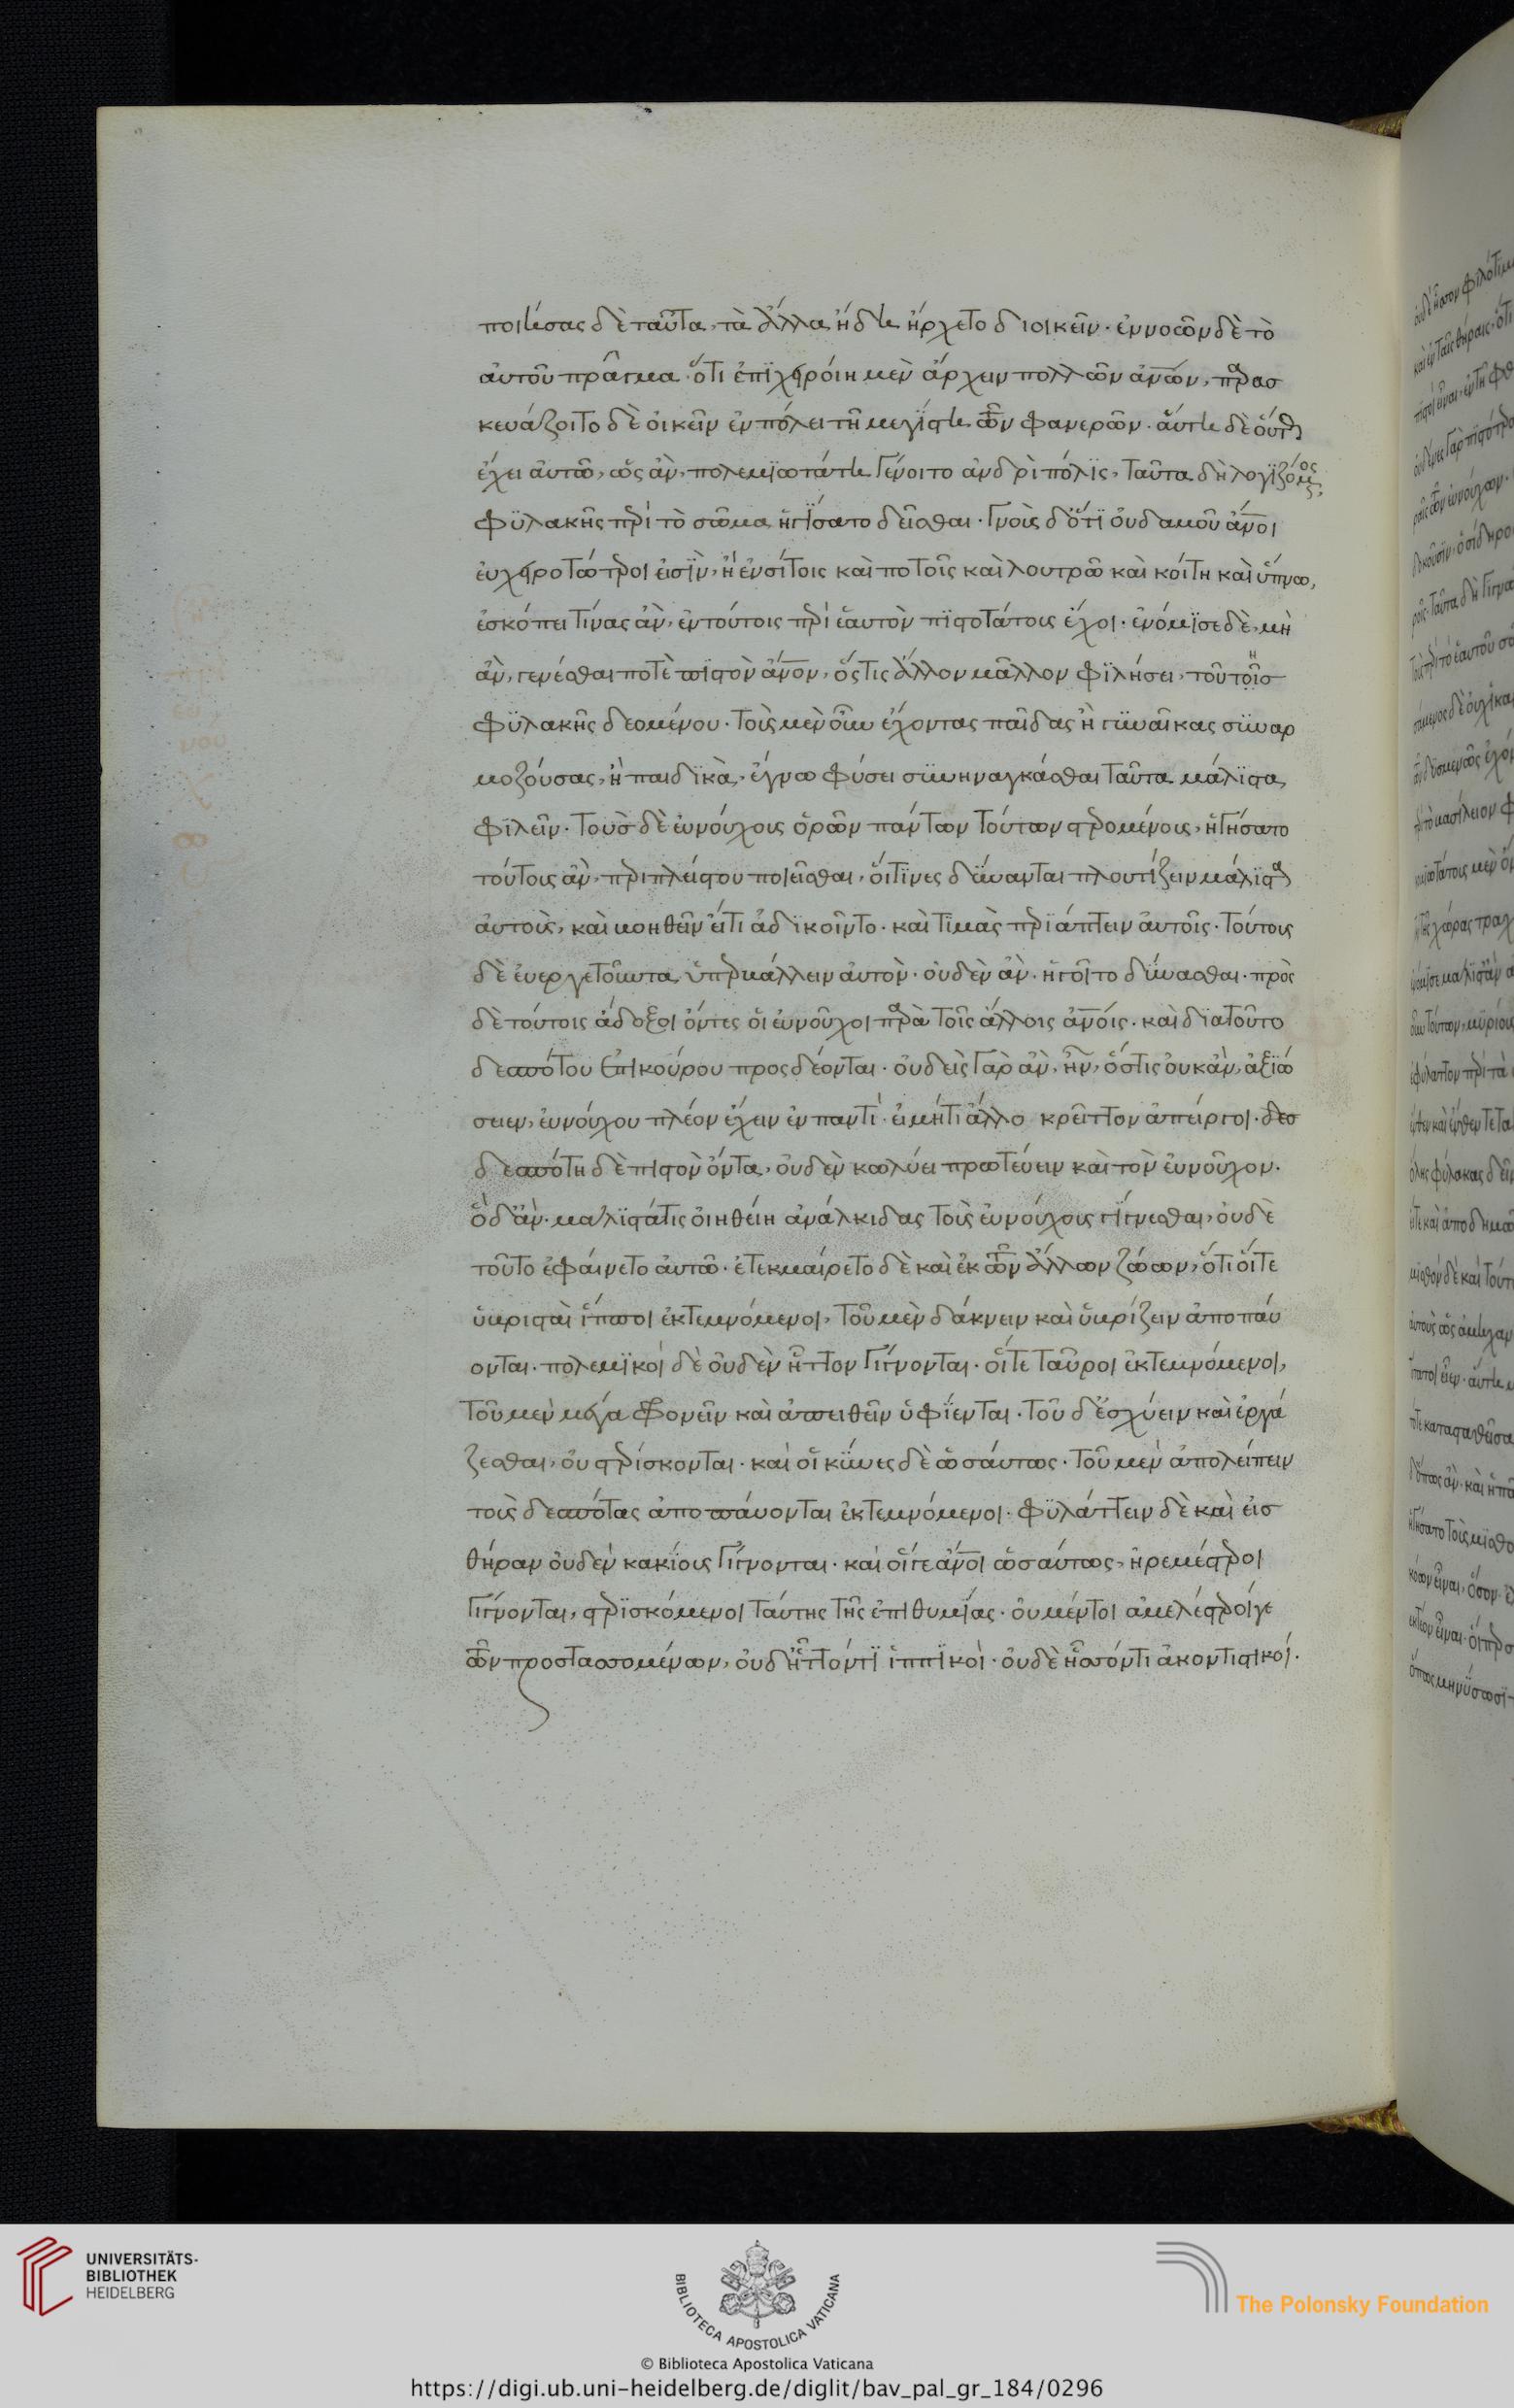 ποιήσας δὲ ταῦτα, τὰ ἄλλα ἤδη ἤρχετο διοικεῖν· ἐννοῶν δὲ τὸ
αὐτοῦ πρᾶγμα· ὅτι ἐπιχειροίη μὲν ἄρχειν πολλῶν ἀν̅ων, παρασ
κευάζοιτο δὲ οἰκεῖν ἐν πόλει τῆ μεγίστη τῶν φανερῶν· αὕτη δὲ οὕτως
ἔχει αὐτῶ, ὡς ἂν, πολεμϊωτάτη γένοιτο ἀνδρὶ πόλϊς, ταῦτα δὴ λογϊζόμενος,
φϋλακῆς περὶ τὸ σῶμα ἡγήσατο δεῖσθαι· γνοὺς δ' ὅτϊ οὐδαμοῦ ἄν̅οι
εὐχειρωτότεροι εἰσὶν, ἢ ἐν σίτοις καὶ ποτοῖς καὶ λουτρῶ καὶ κοίτη καὶ ὕπνω,
ἐσκόπει τίνας ἂν, ἐν τούτοις περὶ ἑαυτὸν πϊστοτάτους ἔχοι· ἐνόμϊσε δὲ, μὴ
ἂν, γενέσθαι ποτὲ πϊστὸν ἄν̅ον, ὅστις ἄλλον μᾶλλον φϊλήσει, τοῦ τῆς
φϋλακῆς δεομένου· τοὺς μὲν οὖν ἔχοντας παῖδας ἢ γϋναῖκας σϋναρ
μοζούσας, ἢ παιδϊκὰ, ἔγνω φύσει σϋνηναγκάσθαι ταῦτα μάλϊστα
φϊλεῖν· τοὺς δὲ εὐνούχους ὁρῶν πάντων τούτων στερομένους, ἡγήσατο
τούτους ἂν, περὶ πλείστου ποιεῖσθαι, οἵτϊνες δύνανται πλουτίζειν μάλϊστα
αὐτοὺς, καὶ βοηθεῖν εἴ τι ἀδϊκοῖντο· καὶ τϊμὰς περϊάπτειν αὐτοῖς· τούτους
δὲ εὐεργετοῦντα ὑπερβάλλειν αὐτὸν· οὐδὲν ἂν· ἡγοῖτο δύνασθαι· πρὸς
δὲ τούτοις ἄδοξοι ὄντες οἱ εὐνοῦχοι παρὰ τοῖς ἄλλοις ἀν̅οις· καὶ δϊατοῦτο
δεσπότου ἐπικούρου προσδέονται· οὐδεὶς γὰρ ἂν, ἦν, ὅστις οὐκ ἂν, ἀξϊώ
σειεν, εὐνούχου πλέον ἔχειν ἐν παντὶ· εἰ μήτι ἄλλο κρεῖττον ἀπείργοι· δεσ
δεσπότη δὲ πιστὸν ὄντα, οὐδὲν κωλύει πρωτεύειν καὶ τὸν εὐνοῦχον.
ὃ δ' ἂν· μάλϊστά τις οἰηθείη ἀνάλκιδας τοὺς εὐνούχους γίγνεσθαι, οὐδὲ
τοῦτο ἐφαίνετο αὐτῶ· ἐτεκμαίρετο δὲ καὶ ἐκ τῶν ἄλλων ζώων, ὅτι οἵτε
ὑβρισταὶ ἵπποι ἐκτεμνόμενοι, τοῦ μὲν δάκνειν καὶ ὑβρίζειν ἀποπαύ
ονται· πολεμϊκοὶ δὲ οὐδὲν ἧττον γίγνονται· οἵτε ταῦροι ἐκτεμνόμενοι,
τοῦ μὲν μέγα φρονεῖν καὶ ἀπειθεῖν ὑφίενται· τοῦ δ' ἰσχύειν καὶ ἐργά
ζεσθαι, οὐ στερίσκονται· καὶ οἱ κύνες δὲ ὡσαύτως· τοῦ μὲν ἀπολείπειν
τοὺς δεσπότας ἀποπαύονται ἐκτεμνόμενοι· φϋλάττειν δὲ καὶ εἰσ
θήραν οὐδὲν κακίους γίγνονται· καὶ οἵγε ἄν̅οι ὡσαύτως, ἠρεμέστεροι
γίγνονται, στερϊσκόμενοι ταύτης τῆς ἐπιθυμίας· οὐ μέντοι ἀμελέστεροί γε
τῶν προστασσομένων, οὐδ' ἧττόν τϊ ἱππϊκοὶ· οὐδὲ ἧσσόν τι ἀκοντιστικοί·
UNIVERSITÄTS-
BIBLIOTHEK
HEIDELBERG
BIBLIOTECA APOSTOLICA VATICANA
The Polonsky Foundation
© Biblioteca Apostolica Vaticana
https://digi.ub.uni-heidelberg.de/diglit/bav_pal_gr_184/0296